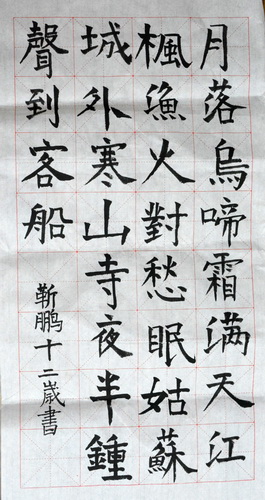 月落烏啼霜满天江
楓漁火對愁眠姑蘇
城外寒山寺夜半鍾
聲到客船
靳鹏十二歲書